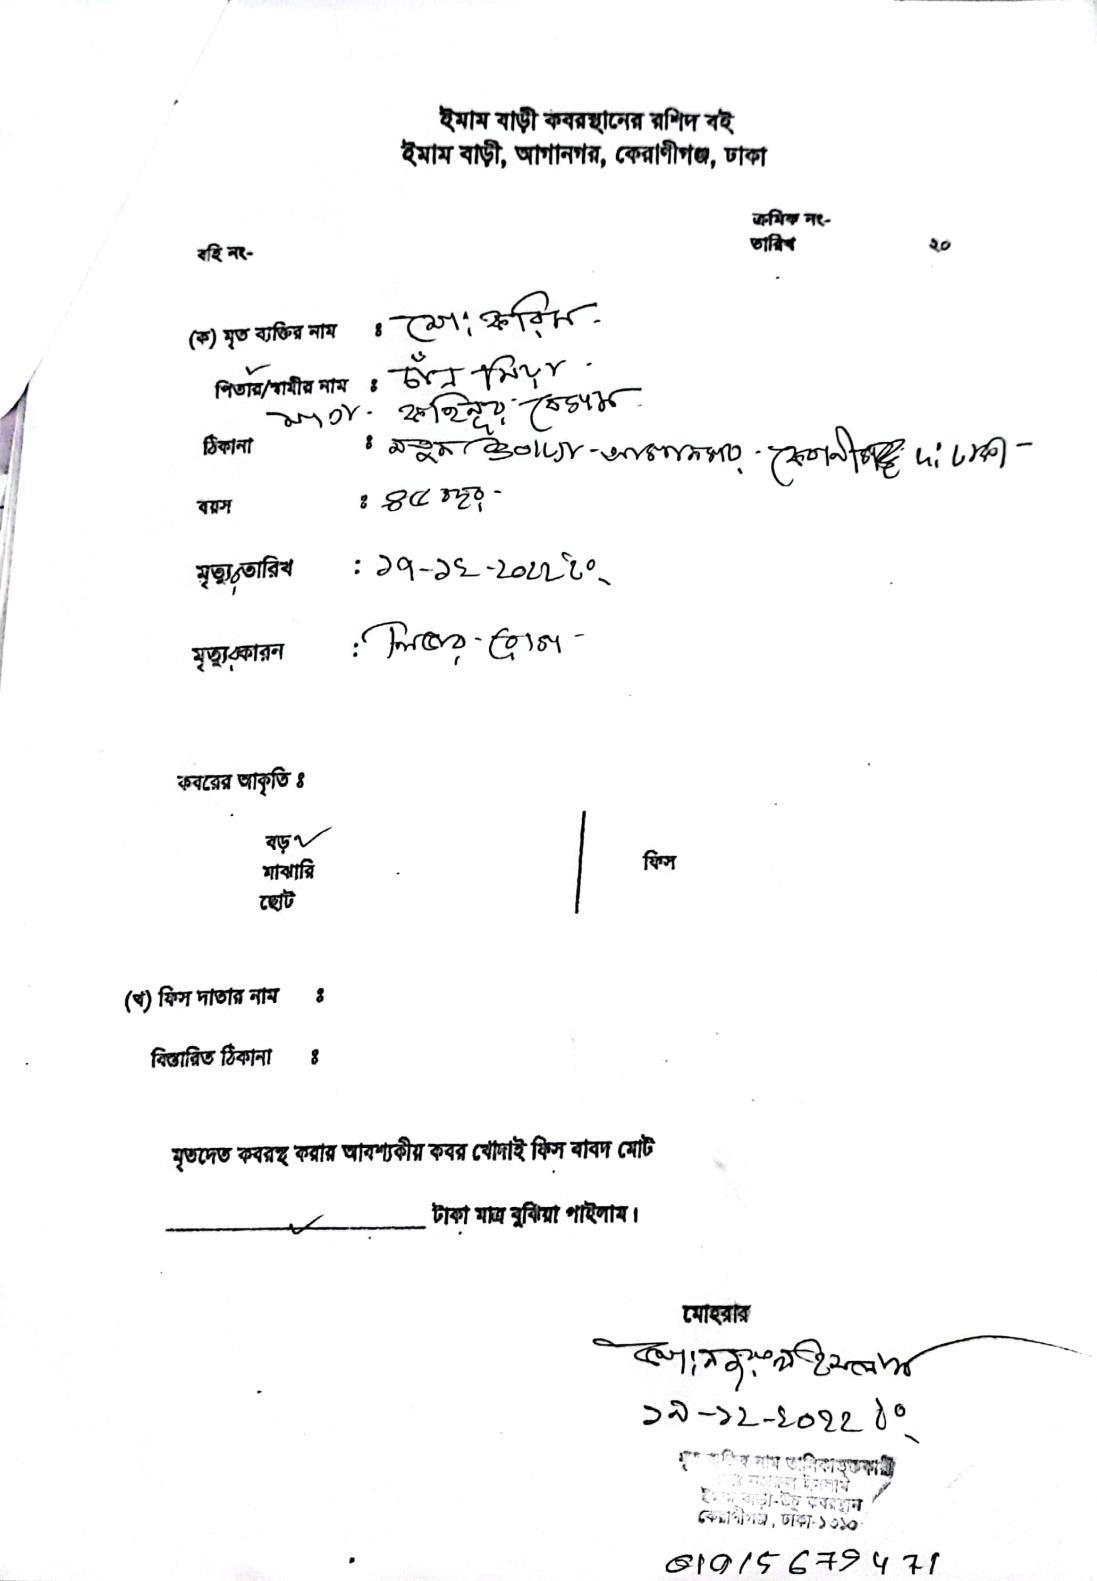 ইমাম বাড়ী কবরস্থানের রশিদ বই
ইমাম বাড়ী, আগানগর, কেরাণীগঞ্জ, ঢাকা
ক্রমিক নং-
বহি নং-
তারিখ ২০
(ক) মৃত ব্যক্তির নাম : মো: করিম -
পিতার/স্বামীর নাম : চাঁন মিয়া -
মাতা - কহিনূর বেগম
ঠিকানা : - আগানগর - কেরানীগঞ্জ দ: ঢাকা -
বয়স : ৪৫ বছর -
মৃত্যুর তারিখ : ১৭-১২-২০২২ ইং
মৃত্যুর কারন : লিভার রোগ -
কবরের আকৃতি :
বড় ✓
মাঝারি
ছোট
ফিস
(খ) ফিস দাতার নাম :
বিস্তারিত ঠিকানা :
মৃতদেত কবরস্থ করার আবশ্যকীয় কবর খোদাই ফিস বাবদ মোট
টাকা মাত্র বুঝিয়া পাইলাম।
মোহরার
মো: নজরুল ইসলাম
১৯-১২-২০২২ ইং
মৃত ব্যক্তির নাম তালিকাভূক্তকারী
মোঃ নজরুল ইসলাম
ইমাম বাড়ী কবরস্থান
কেরাণীগঞ্জ, ঢাকা-১৩১০
01915679471